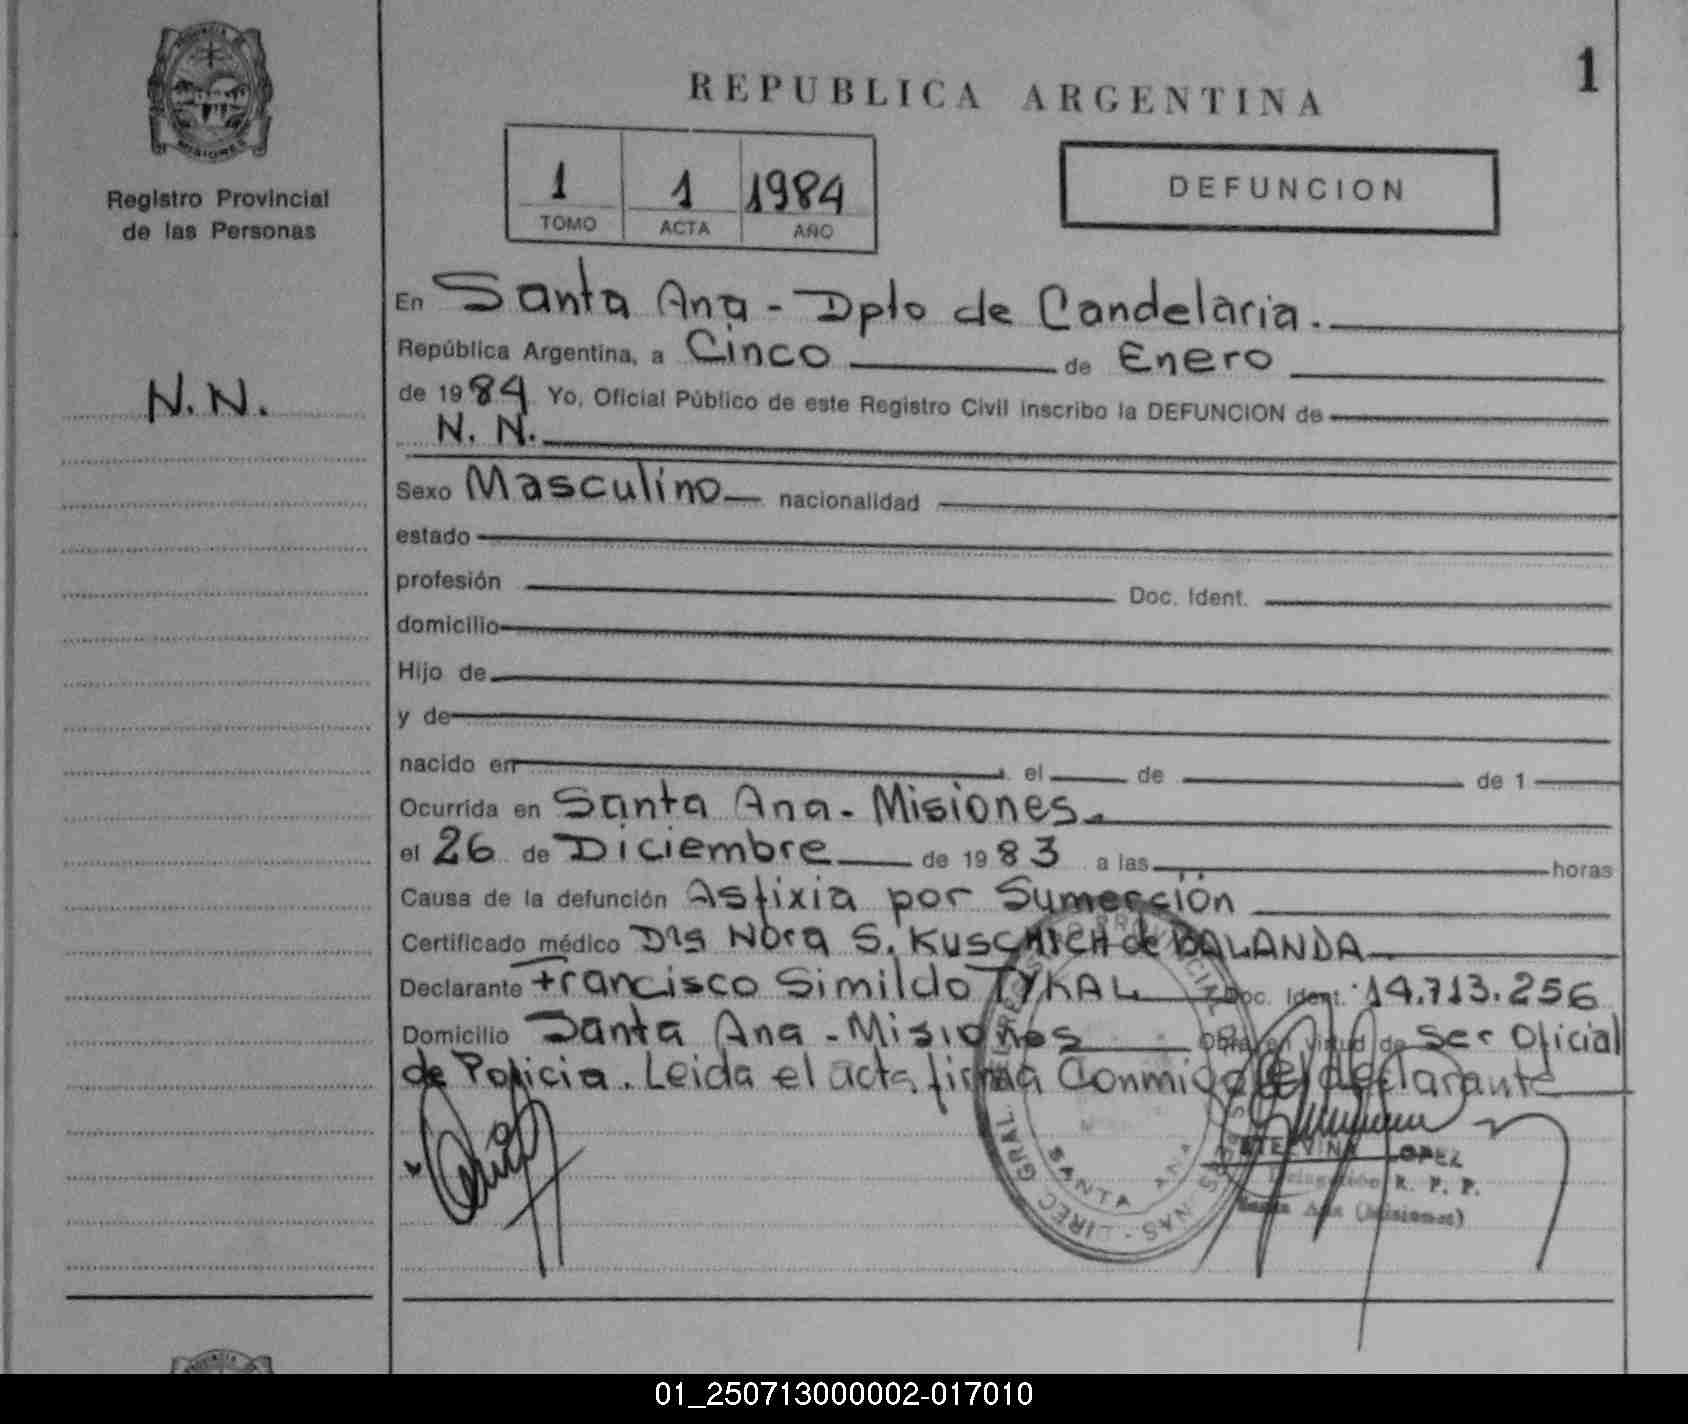 PROVINCIA DE
MISIONES
Registro Provincial
de las Personas
N.N.
REPUBLICA ARGENTINA
1
1 1 1984
TOMO ACTA AÑO
DEFUNCION
En Santa Ana - Dpto de Candelaria.
República Argentina, a Cinco de Enero
de 1984 Yo, Oficial Público de este Registro Civil inscribo la DEFUNCION de
N. N.
Sexo Masculino nacionalidad
estado
profesión Doc. Ident.
domicilio
Hijo de
y de
nacido en el de de 1
Ocurrida en Santa Ana - Misiones.
el 26 de Diciembre de 1983 a las horas
Causa de la defunción Asfixia por Sumerción
Certificado médico Dra Nora S. KUSCHICH de BALANDA
Declarante Francisco Simildo TYKAL Doc. Ident. 14.713.256
Domicilio Santa Ana - Misiones Obra en virtud de Ser Oficial
de Policia. Leida el acta, firma Conmigo el declarante
SANTA ANA
LOPEZ
Delegación R. P. P.
Santa Ana (Misiones)
01_250713000002-017010